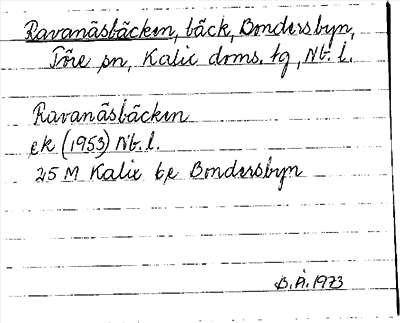 Ravanäsbäcken, bäck, Bondersbyn,
Töre sn, Kalix doms. tg, Nb. l.
Ravanäsbäcken
ek (1953) Nb. l.
25 M Kalix bx Bondersbyn
B.Å. 1973